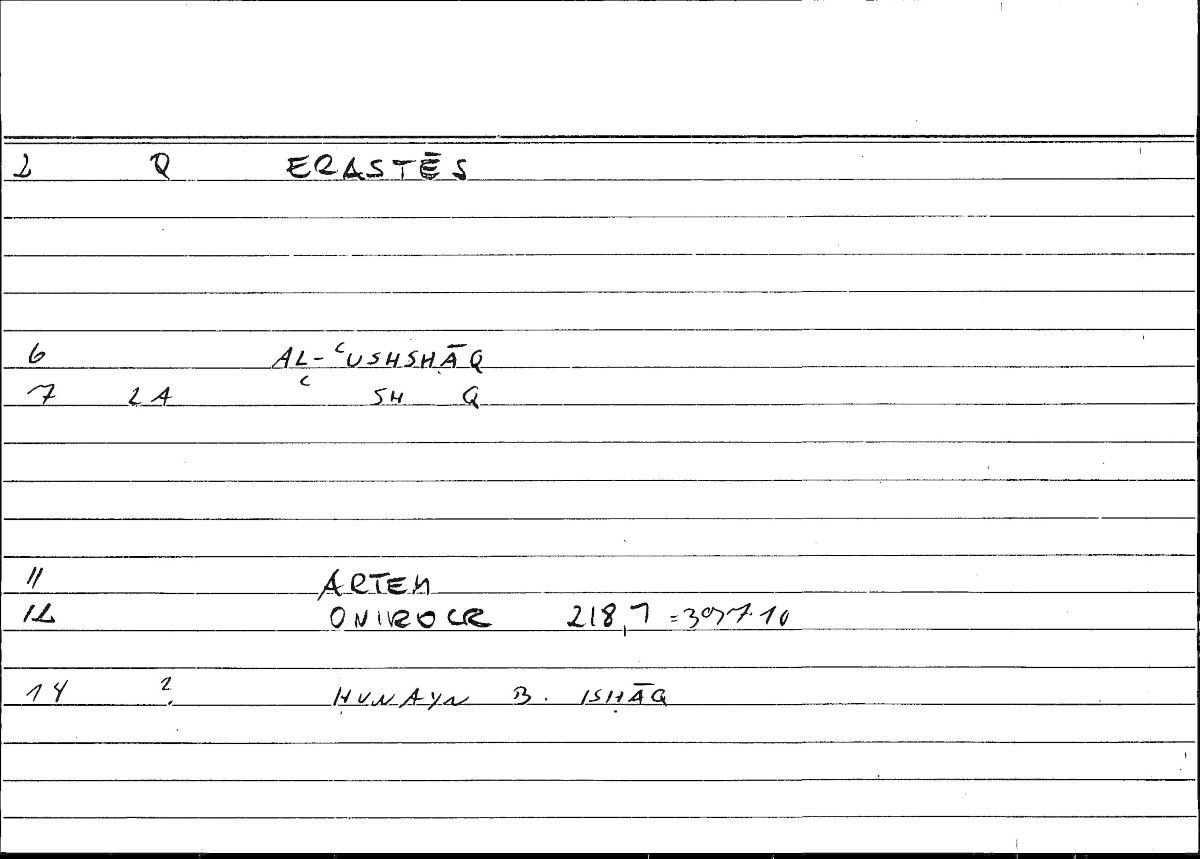 2 Q ERASTĒS
6 AL-ʿUSHSHĀQ
7 2A ʿ SH Q
11 ARTEM
12 ONIROCR 218,7 = 397.10
14 ? ḤUNAYN B. ISḤĀQ